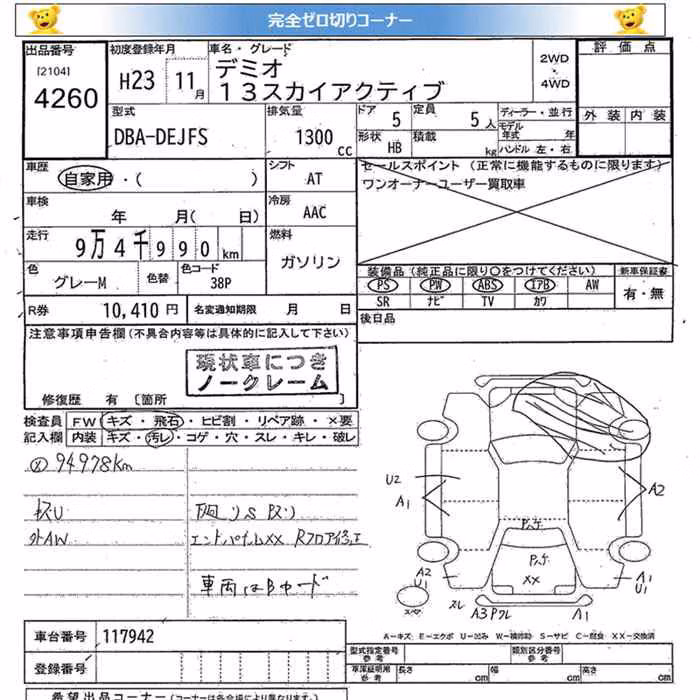 完全ゼロ切りコーナー
出品番号
[2104]
4260
初度登録年月
H23 11 月
車名・グレード
デミオ
13スカイアクティブ
2WD
・
4WD
評価点
外装 内装
型式
DBA-DEJFS
排気量
1300 cc
ドア 5
定員 5 人
形状 HB
積載 kg
ディーラー・並行
モデル年式 年
ハンドル 左・右
車歴
自家用・( )
シフト
AT
車検
年 月( 日)
冷房
AAC
走行
9万4千990 km
燃料
ガソリン
色
グレーM
色替
色コード
38P
セールスポイント(正常に機能するものに限ります)
ワンオーナーユーザー買取車
装備品(純正品に限り○をつけてください)
PS PW ABS エアB AW
SR ナビ TV カワ
新車保証書
有・無
R券 10,410 円
名変通知期限 月 日
後日品
注意事項申告欄(不具合内容等は具体的に記入して下さい)
現状車につき
ノークレーム
修復歴 有〔箇所
検査員
記入欄
FW キズ・飛石・ヒビ割・リペア跡・×要
内装 キズ・汚レ・コゲ・穴・スレ・キレ・破レ
94978km
外AW
エンドパネルXX Rフロア修正
車両はBカード
U2
A1
A2
A2
U1
スレ
A3
A1
A1
U1
XX
スペヤ
A-キズ E-エクボ U-凹み W-補修跡 S-サビ C-腐食 XX-交換済
車台番号 117942
登録番号
型式指定番号
参考
類別区分番号
参考
車庫証明用
参考
長さ cm
幅 cm
高さ cm
希望出品コーナー